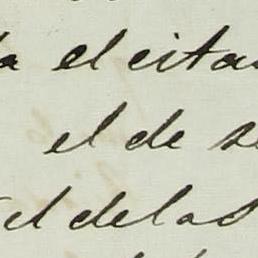 el cita
el de
el de las